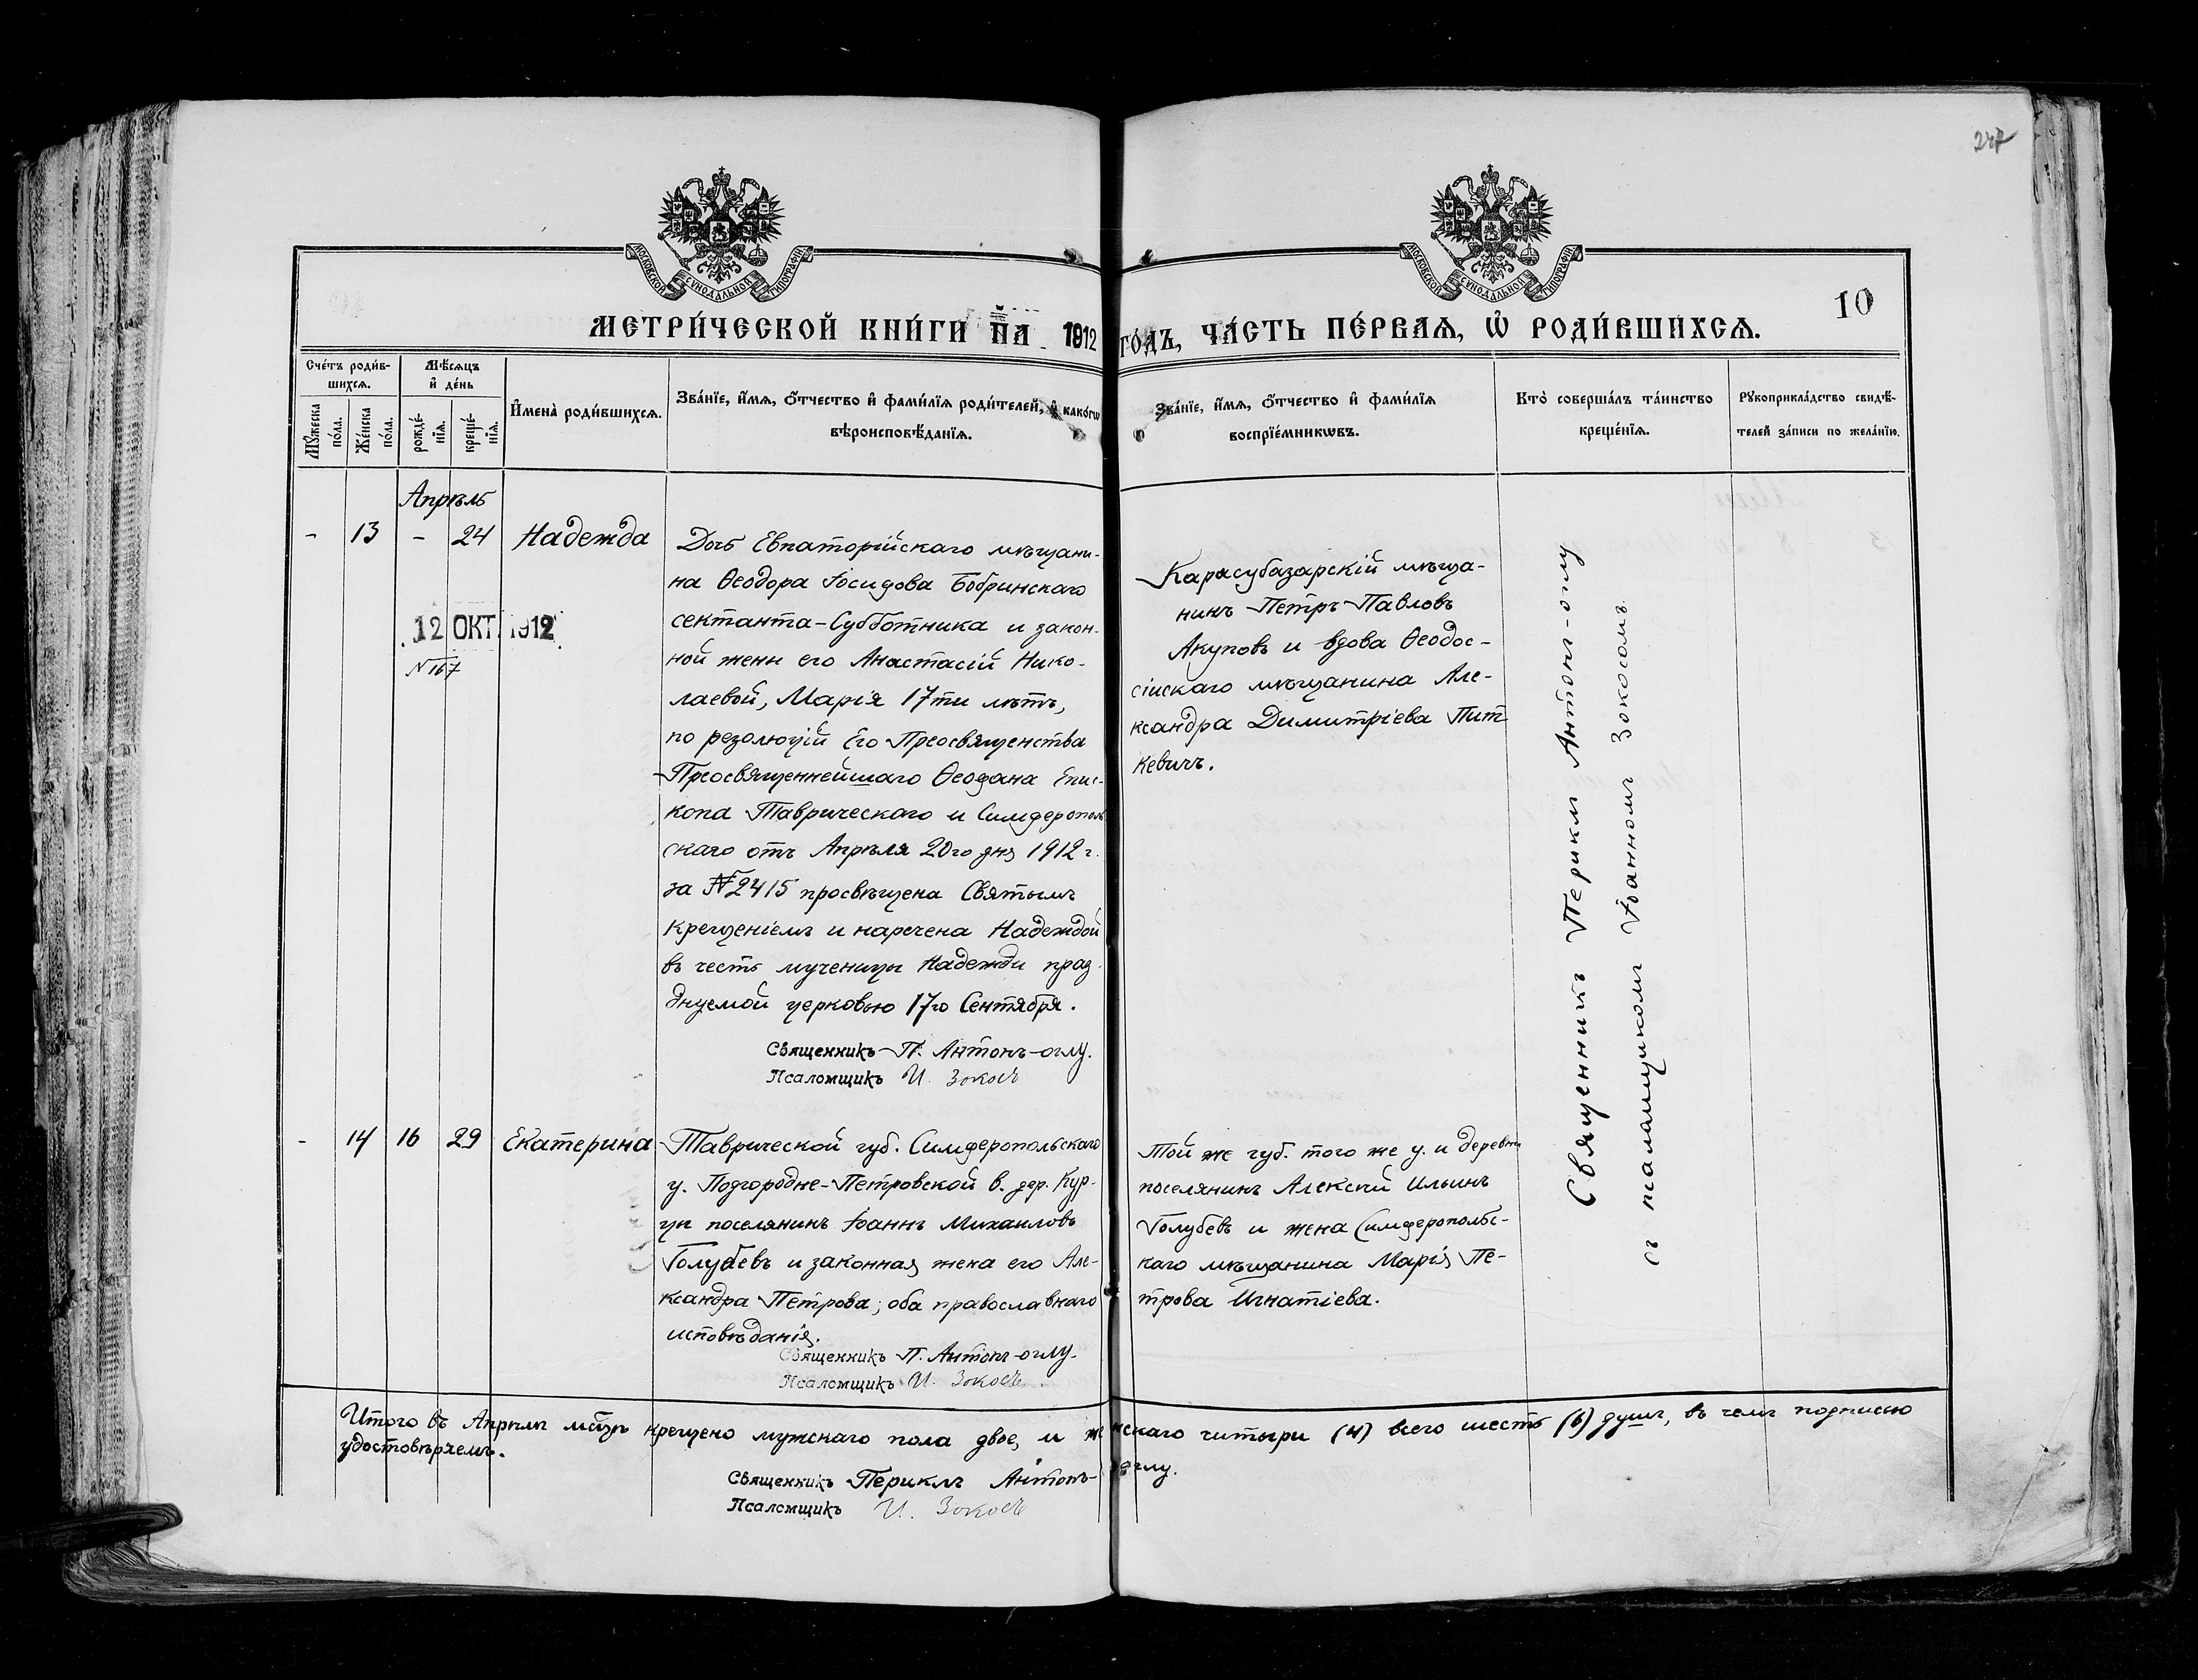 247
МОСКОВСКОЙ СѴНОДАЛЬНОЙ ТИПОГРАФІИ
МОСКОВСКОЙ СѴНОДАЛЬНОЙ ТИПОГРАФІИ
10
МЕТРИ́ЧЕСКОЙ КНИ́ГИ НА 1912 ГО́ДЪ, ЧА́СТЬ ПЕ́РВАѦ, Ѡ РОДИ́ВШИХСѦ.
Сче́тъ роди́в-
шихсѧ.
Мѣ́сѧцъ
и де́нь
Мꙋ́жеска
по́ла.
Же́нска
по́ла.
рожде́-
нїѧ.
креще́-
нїѧ.
И҆мена̀ роди́вшихсѧ.
Зва́нїе, и҆́мѧ, ѻ҆́тчество и҆ фами́лїѧ роди́телей, и҆ како́гѡ
вѣроисповѣ́данїѧ.
Зва́нїе, и҆́мѧ, ѻ҆́тчество и҆ фами́лїѧ
воспрїе́мникѡвъ.
Кто̀ соверша́лъ та́инство
креще́нїѧ.
Рꙋкоприкла́дство свидѣ́-
телей за́писи по жела́нїю.
Апрѣль
- 13 - 24 Надежда
12 ОКТ. 1912
№ 167
Дочь Евпаторійскаго мѣщани-
на Ѳеодора Іосифова Бобринскаго
сектанта-Субботника и закон-
ной жены его Анастасіи Нико-
лаевой, Марія 17ти лѣтъ,
по резолюціи Его Преосвященства
Преосвященнейшаго Ѳеофана Епис-
копа Таврическаго и Симферополь
скаго отъ Апрѣля 20го дня 1912 г.
за № 2415 просвѣщена Святымъ
Крещеніемъ и наречена Надеждой
въ честь мученицы Надежды праз-
днуемой церковью 17го Сентября.
Священникъ П. Антонъ-оглу.
Псаломщикъ И. Зокосъ
Карасубазарскій мѣща-
нинъ Петръ Павловъ
Акуповъ и вдова Ѳеодос-
сійскаго мѣщанина Але-
ксандра Димитріева Пит
кевичъ.
Священникъ Периклъ Антонъ-оглу
съ псаломщикомъ Іоанномъ Зокосомъ.
- 14 16 29 Екатерина
Таврической губ. Симферопольскаго
у. Подгородне-Петровской в. дер. Кур-
цы поселянинъ Іоаннъ Михаиловъ
Голубевъ и законная жена его Але-
ксандра Петрова; оба православнаго
исповѣданія.
Священникъ П. Антонъ-оглу.
Псаломщикъ И. Зокосъ
Той же губ. того же у. и деревни
поселянинъ Алексій Ильинъ
Голубевъ и жена Симферопольс-
каго мѣщанина Марія Пе-
трова Игнатіева.
Итого въ Апрѣлѣ мѣсяцѣ крещено мужскаго пола двое, и женскаго читыри (4) всего шесть (6) душъ, въ чемъ подписью
удостовѣряемъ.
Священникъ Периклъ Антонъ-оглу.
Псаломщикъ И. Зокосъ